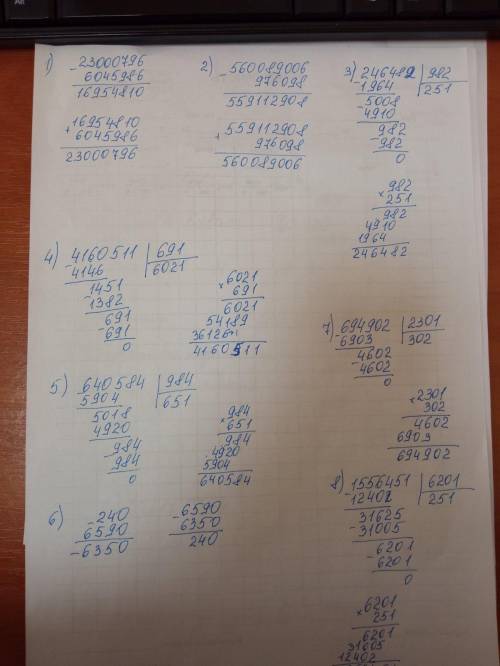 1)
-23000796
6045986
16954810
+16954810
6045986
23000796
2)
-560089006
976098
559112908
+559112908
976098
560089006
3)
-246482 | 982
1964 | 251
-5008
4910
982
-982
0
×982
251
982
4910
1964
246482
4)
-4160511 | 691
4146 | 6021
-1451
1382
-691
691
0
×6021
691
6021
54189
36126
4160511
5)
640584 | 984
5904 | 651
5018
4920
-984
984
0
×984
651
984
4920
5904
640584
6)
-240
6590
-6350
-6590
6350
240
7)
-694902 | 2301
6903 | 302
-4602
4602
0
×2301
302
4602
6903
694902
8)
-1556451 | 6201
12402 | 251
-31625
31005
-6201
6201
0
×6201
251
6201
31005
12402